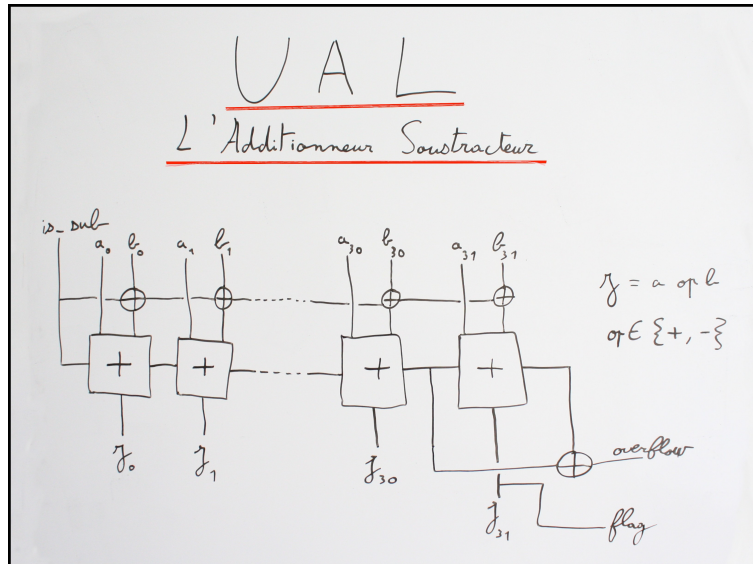 UAL
L'Additionneur Soustracteur
is_sub
a₀ b₀ a₁ b₁ a₃₀ b₃₀ a₃₁ b₃₁
z = a op b
op ∈ {+, -}
+ + + +
z₀ z₁ z₃₀ z₃₁
overflow
flag